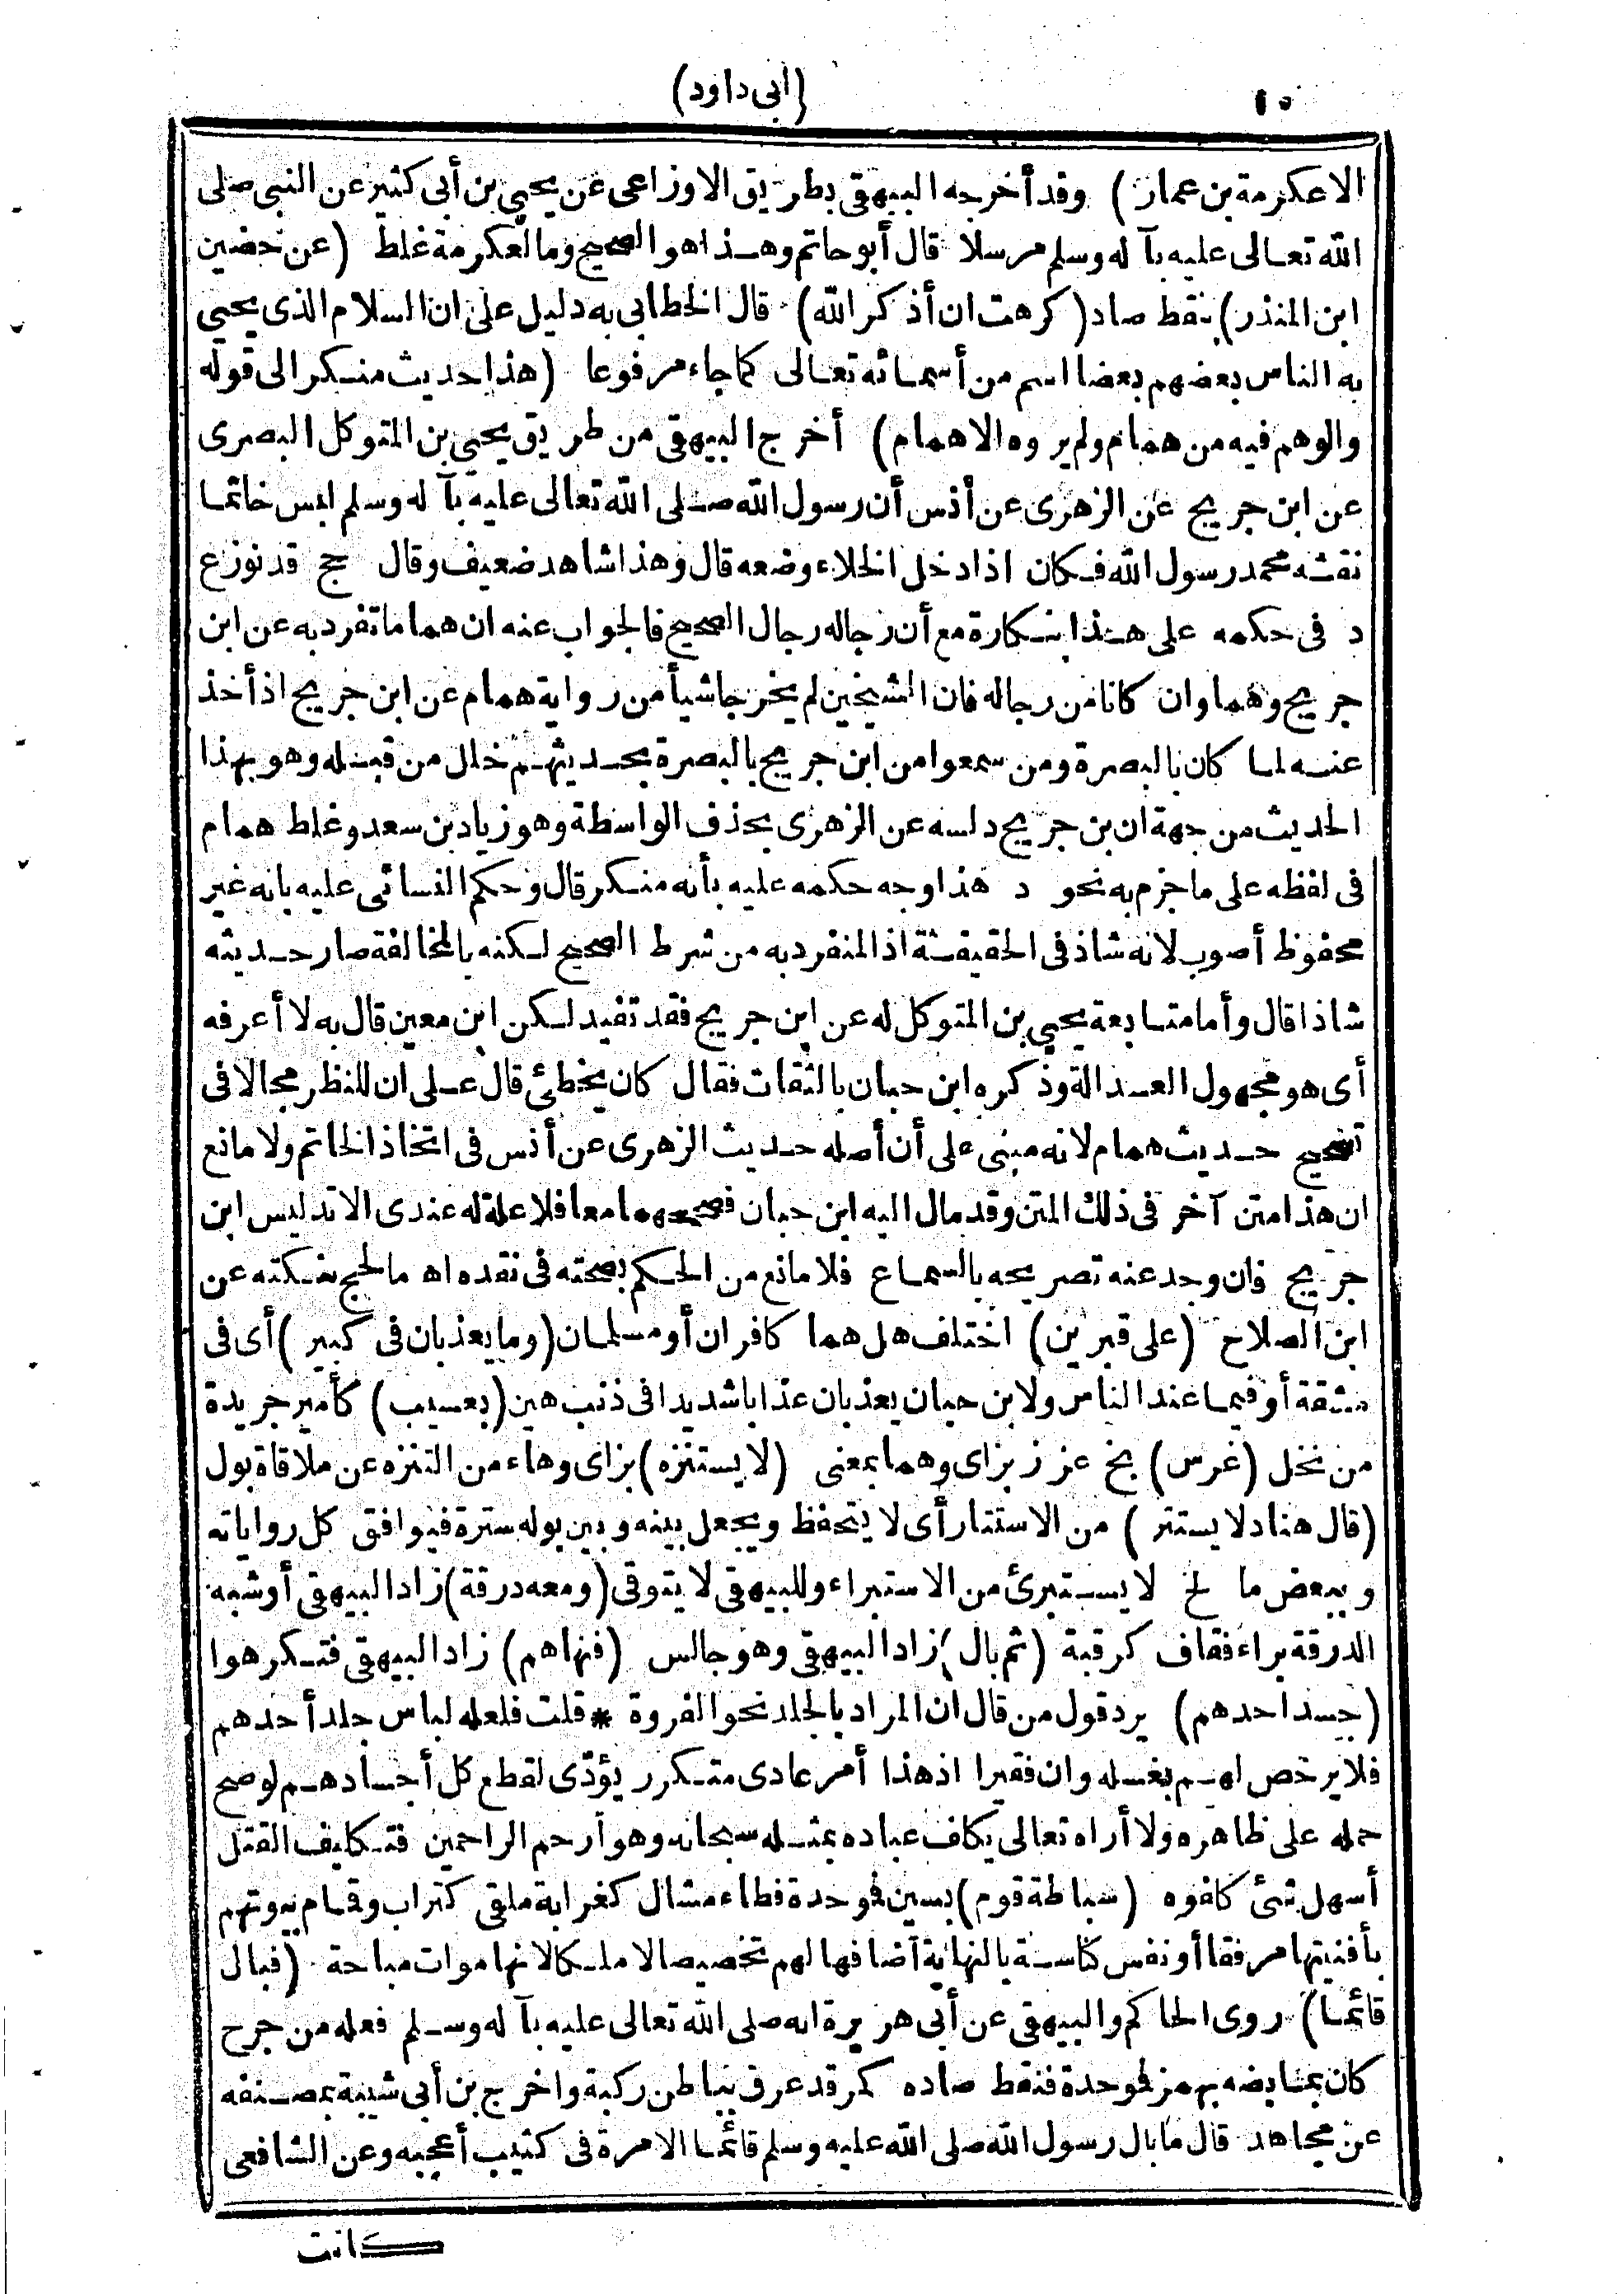 ١٠
(أبى داود)
الاعكرمة بن عمار) وقد أخرجه البيهقى بطريق الاوزاعى عن يحيى بن أبى كثير عن النبى صلى
الله تعالى عليه بآله وسلم مرسلا قال أبو حاتم وهذا هو الصحيح وما لعكرمة غلط (عن حضين
ابن المنذر) بنقط صاد (كرهت ان أذكر الله) قال الخطابى به دليل على ان السلام الذى يحيى
به الناس بعضهم بعضا اسم من أسمائه تعالى كما جاء مرفوعا (هذا حديث منكر الى قوله
والوهم فيه من همام ولم يروه الاهمام) أخرج البيهقى من طريق يحيى بن المتوكل البصرى
عن ابن جريج عن الزهرى عن أنس أن رسول الله صلى الله تعالى عليه بآله وسلم لبس خاتما
نقشه محمد رسول الله فكان اذا دخل الخلاء وضعه قال وهذا شاهد ضعيف وقال حج قد نوزع
د فى حكمه على هذا بنكارة مع أن رجاله رجال الصحيح فالجواب عنه ان هماما تفرد به عن ابن
جريج وهما وان كانا من رجاله فان الشيخين لم يخرجا شيأ من رواية همام عن ابن جريج اذ أخذ
عنه لما كان بالبصرة ومن سمعوا من ابن جريج بالبصرة بحديثهم خلل من قبله وهو بهذا
الحديث من جهة ان بن جريج دلسه عن الزهرى بحذف الواسطة وهو زياد بن سعد وغلط همام
فى لفظه على ما جزم به نحو د هذا وجه حكمه عليه بأنه منكر قال وحكم النسائى عليه بانه غير
محفوظ أصوب لانه شاذ فى الحقيقة اذ المنفرد به من شرط الصحيح لكنه بالمخالفة صار حديثه
شاذا قال وأما متابعة يحيى بن المتوكل له عن ابن جريج فقد تفيد لكن ابن معين قال به لا أعرفه
أى هو مجهول العدالة وذكره ابن حبان بالثقات فقال كان يخطئ قال على ان للنظر مجالا فى
تصحيح حديث همام لانه مبنى على أن أصله حديث الزهرى عن أنس فى اتخاذ الخاتم ولا مانع
ان هذا متن آخر فى ذلك المتن وقد مال اليه ابن حبان فصححهما معا فلا علة له عندى الا تدليس ابن
جريج فان وجد عنه تصريحه بالسماع فلا مانع من الحكم بصحته فى نقده اه ما لحج بنكته عن
ابن الصلاح (على قبرين) اختلف هل هما كافران أو مسلمان (وما يعذبان فى كبير) أى فى
مشقة أو فيما عند الناس ولابن حبان يعذبان عذابا شديدا فى ذنب هين (بعسيب) كأمير جريدة
من نخل (غرس) بخ غرز بزاى وهما بمعنى (لا يستنزه) بزاى وهاء من التنزه عن ملاقاة بول
(قال هناد لا يستتر) من الاستتار أى لا يتحفظ ويجعل بينه وبين بوله سترة فيوافق كل رواياته
وببعض ما لخ لا يستبرئ من الاستبراء وللبيهقى لا يتوقى (ومعه درقة) زاد البيهقى أو شبه
الدرقة براء فقاف كرقبة (ثم بال) زاد البيهقى وهو جالس (فنهاهم) زاد البيهقى فتكرهوا
(جسد احدهم) يرد قول من قال ان المراد بالجلد نحو الفروة * قلت فلعله لباس جلد أحدهم
فلا يرخص لهم بغسله وان فقيرا اذ هذا أمر عادى متكرر يؤدّى لقطع كل أجسادهم لو صح
حمله على ظاهره ولا أراه تعالى يكاف عباده بمثله سبحانه وهو أرحم الراحمين فتكليف القتل
أسهل شئ كافوه (سباطة قوم) بسين فموحدة فطاء مشال كغرابة ملقى كتراب وقمام بيوتهم
بأفنيتها مرفقا أو نفس كناسة بالنهاية أضافها لهم تخصيصا لا ملكا لانها موات مباحة (فبال
قائما) روى الحاكم والبيهقى عن أبى هريرة انه صلى الله تعالى عليه بآله وسلم فعله من جرح
كان بمأبضه بهمز فموحدة فنقط صاده كمرقد عرق بباطن ركبة واخرج بن أبى شيبة بمصنفه
عن مجاهد قال ما بال رسول الله صلى الله عليه وسلم قائما الا مرة فى كثيب أعجبه وعن الشافعى
كانت